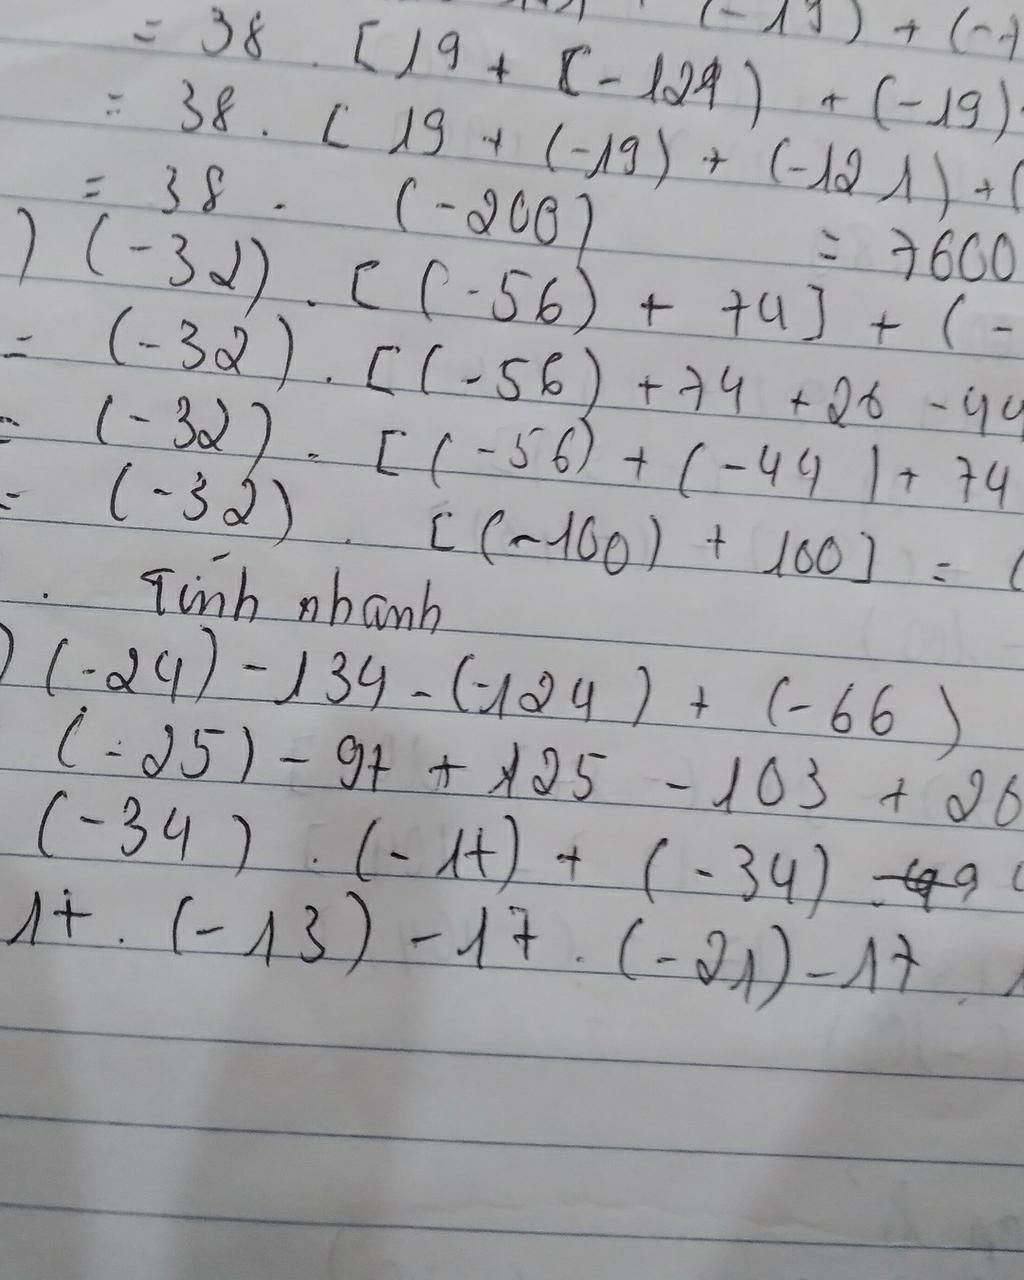 (-19) + (-7
= 38 . [19 + [-121) + (-19)
= 38 . [ 19 + (-19) + (-121) + (
= 38 . (-200) = 7600
) (-32) . [ (-56) + 74] + (-
= (-32) . [(-56) + 74 + 26 - 44
= (-32) . [(-56) + (-44) + 74
= (-32) . [(-100) + 100] = (
. Tính nhanh
) (-24) - 134 - (-124) + (-66)
(-25) - 97 + 125 - 103 + 26
(-34) . (-17) + (-34)
17 . (-13) - 17 . (-21) - 17 .